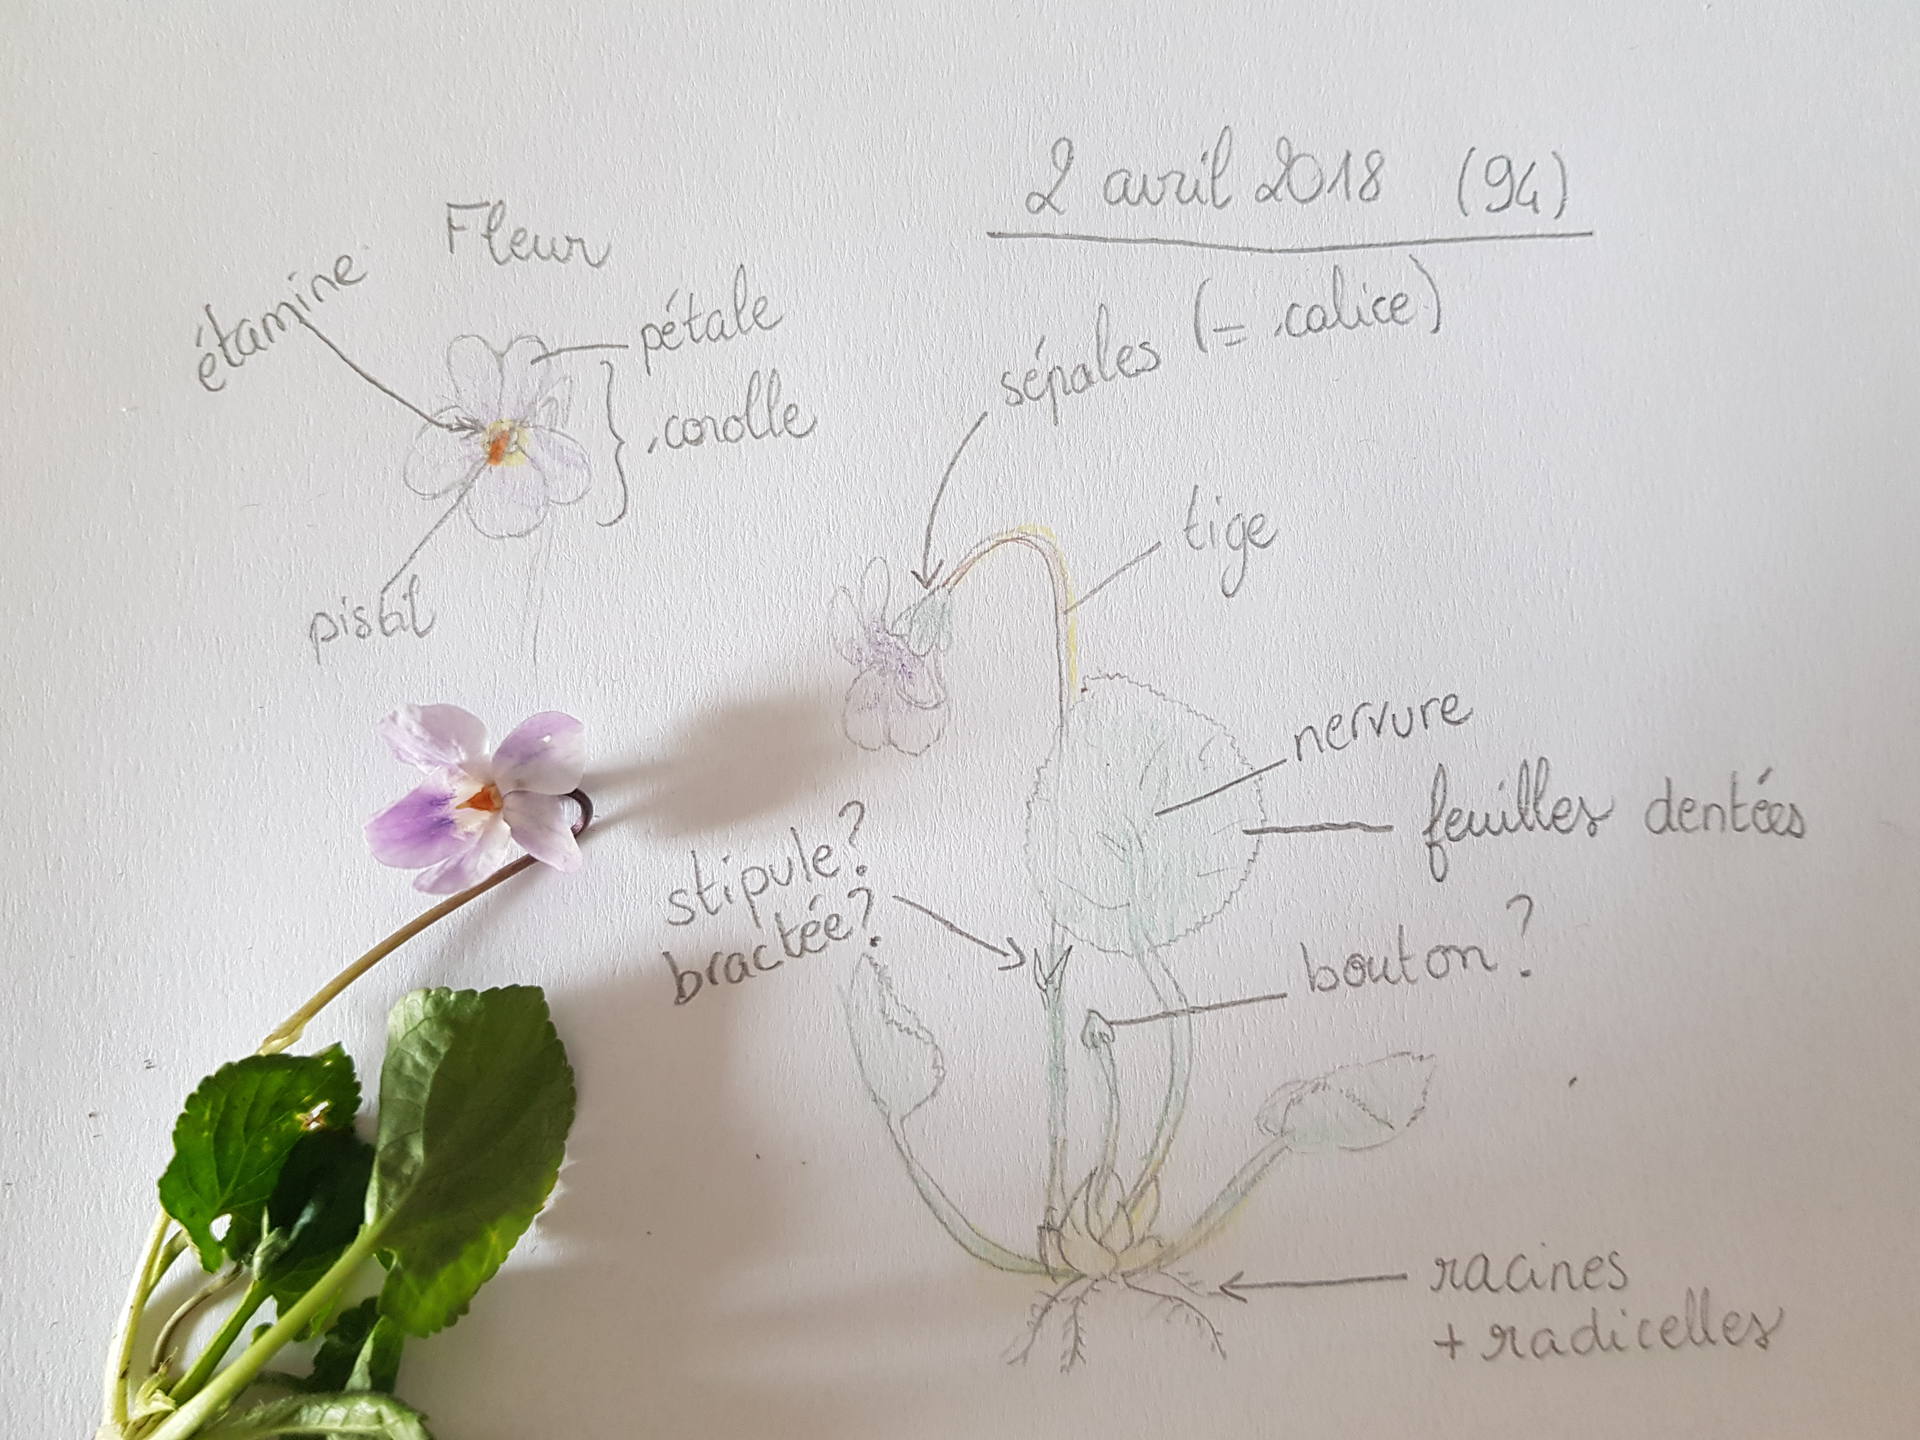 2 avril 2018 (94)
Fleur
étamine
pétale
corolle
pistil
sépales (= calice)
tige
nervure
feuilles dentées
stipule?
bractée?
bouton?
racines
+ radicelles